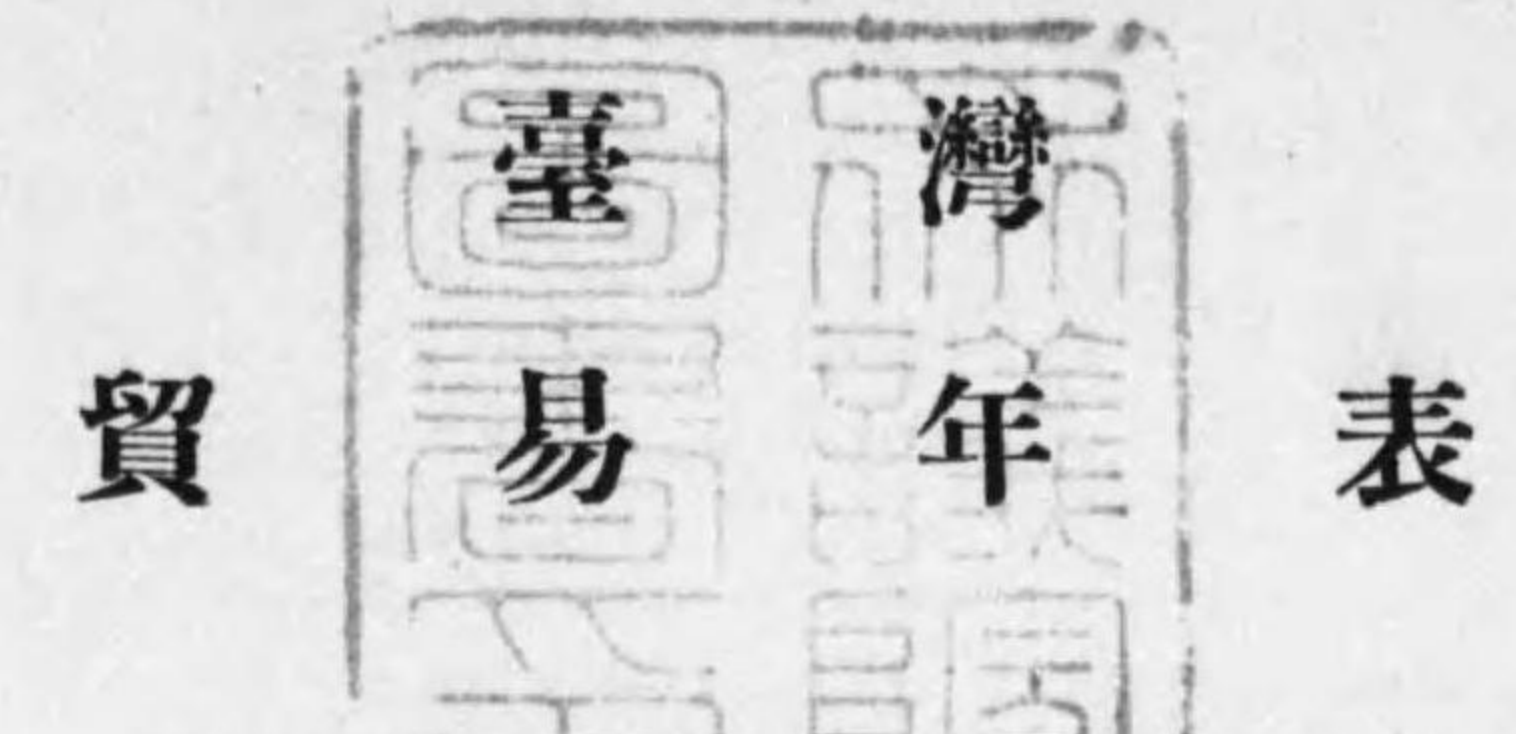 臺灣
貿易年表